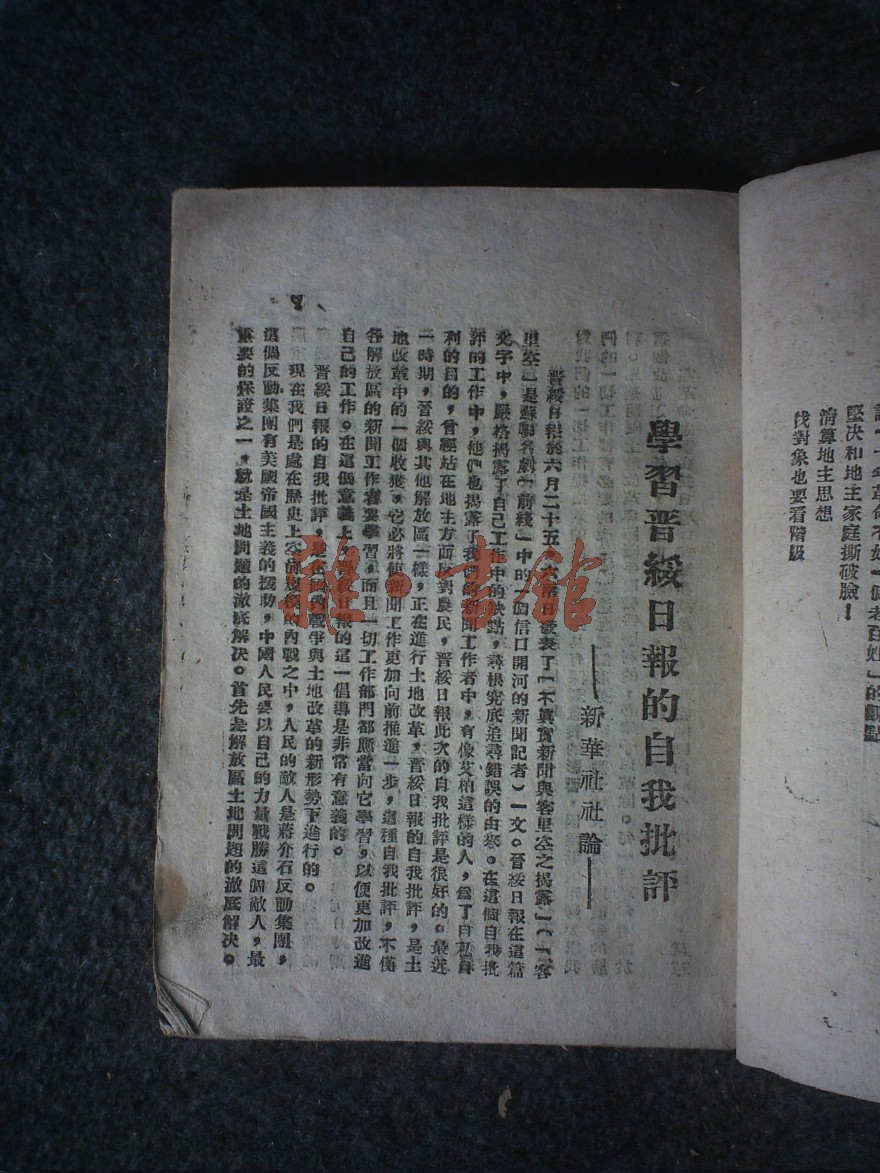 說「十年革命不如一個老百姓」的觀點
堅决和地主家庭撕破臉！
清算地主思想
找對象也要看階級
學習晋綏日報的自我批評
——新華社社論——
晋綏日報於六月二十五、六兩日發表了「不眞實新聞與客里空之揭露」（「客
里空」是蘇聯名劇「前綫」中的一個信口開河的新聞記者）一文。晋綏日報在這篇
文字中，嚴格揭露了自己工作中的缺點，尋根究底追尋錯誤的由來。在這個自我批
評的工作中，他們也揭露了我們的新聞工作者中，有像艾柏這樣的人，爲了自私自
利的目的，曾經站在地主方面反對農民，晋綏日報此次的自我批評是很好的。最近
一時期，晋綏與其他解放區一樣，正在進行土地改革，晋綏日報的自我批評，是土
地改革中的一個收獲，它必將使新聞工作更加向前推進一步，這種自我批評，不僅
各解放區的新聞工作者要學習，而且一切工作部門都應當向它學習，以便更加改進
自己的工作。在這個意義上，晋綏日報的這一倡導是非常有意義的。
晋綏日報的自我批評，是在國內戰爭與土地改革的新形勢下進行的。
現在我們是處在歷史上空前規模的內戰之中，人民的敵人是蔣介石反動集團，
這個反動集團有美國帝國主義的援助，中國人民要以自己的力量戰勝這個敵人，最
重要的保證之一，就是土地問題的澈底解决。首先是解放區土地問題的澈底解决。
雅·書館